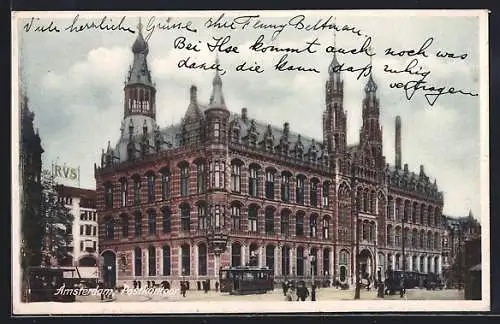 Viele herzliche Grüsse Ihre Fenny Beltman
Bei Ilse kommt auch noch was
dazu, die kann das ruhig
vertragen
RVS
Amsterdam, Postkantoor